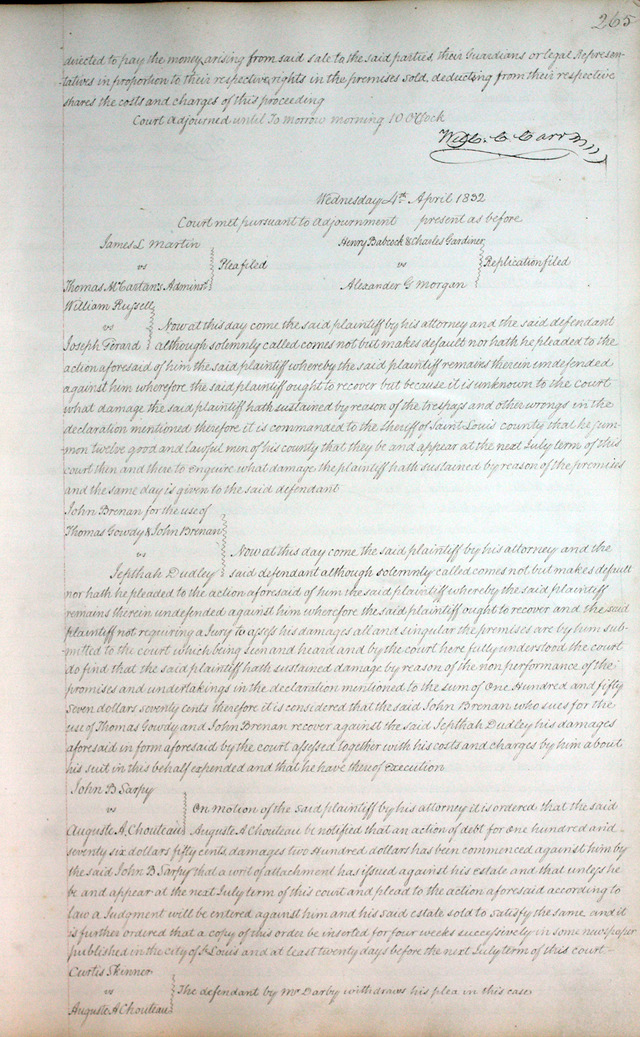 265
directed to pay the money arising from said sale to the said parties their Guardians or legal Represen-
tatives in proportion to their respective rights in the premises sold, deducting from their respective
shares the costs and charges of this proceeding
Court adjourned until To morrow morning 10 O'Clock
Wm. C. Carr
Wednesday 4th April 1832
Court met pursuant to adjournment present as before
James L Martin
vs Plea filed
Thomas McCartans Adminst
Henry Babcock & Charles Gardiner
vs Replication filed
Alexander G Morgan
William Russell
vs Now at this day come the said plaintiff by his attorney and the said defendant
Joseph Forard although solemnly called comes not but makes default nor hath he pleaded to the
action aforesaid of him the said plaintiff whereby the said plaintiff remains therein undefended
against him wherefore the said plaintiff ought to recover but because it is unknown to the Court
what damage the said plaintiff hath sustained by reason of the trespass and other wrongs in the
declaration mentioned therefore it is commanded to the Sheriff of Saint Louis county that he sum-
mon twelve good and lawful men of his county that they be and appear at the next July term of this
court then and there to enquire what damage the plaintiff hath sustained by reason of the premises
and the same day is given to the said defendant
John Brenan for the use of
Thomas Gowdy & John Brenan
vs Now at this day come the said plaintiff by his attorney and the
Jepthah Dudley said defendant although solemnly called comes not but makes default
nor hath he pleaded to the action aforesaid of him the said plaintiff whereby the said plaintiff
remains therein undefended against him wherefore the said plaintiff ought to recover and the said
plaintiff not requiring a Jury to assess his damages all and singular the premises are by him sub-
mitted to the court which being seen and heard and by the court here fully understood the court
do find that the said plaintiff hath sustained damage by reason of the non performance of the
promises and undertakings in the declaration mentioned to the sum of One Hundred and fifty
seven dollars seventy cents therefore it is considered that the said John Brenan who sues for the
use of Thomas Gowdy and John Brenan recover against the said Jepthah Dudley his damages
aforesaid in form aforesaid by the court assessed together with his costs and charges by him about
his suit in this behalf expended and that he have thereof execution
John B Sarpy
vs On motion of the said plaintiff by his attorney it is ordered that the said
Auguste A Chouteau Auguste A Chouteau be notified that an action of debt for One hundred and
seventy six dollars fifty cents damages two Hundred dollars has been commenced against him by
the said John B. Sarpy that a writ of attachment has issued against his estate and that unless he
be and appear at the next July term of this court and plead to the action aforesaid according to
law a Judgment will be entered against him and his said estate sold to satisfy the same and it
is further ordered that a copy of this order be inserted for four weeks successively in some newspaper
published in the city of St Louis and at least twenty days before the next July term of this court -
Curtis Skinner
vs The defendant by Mr Darby withdraws his plea in this case
Auguste A Chouteau